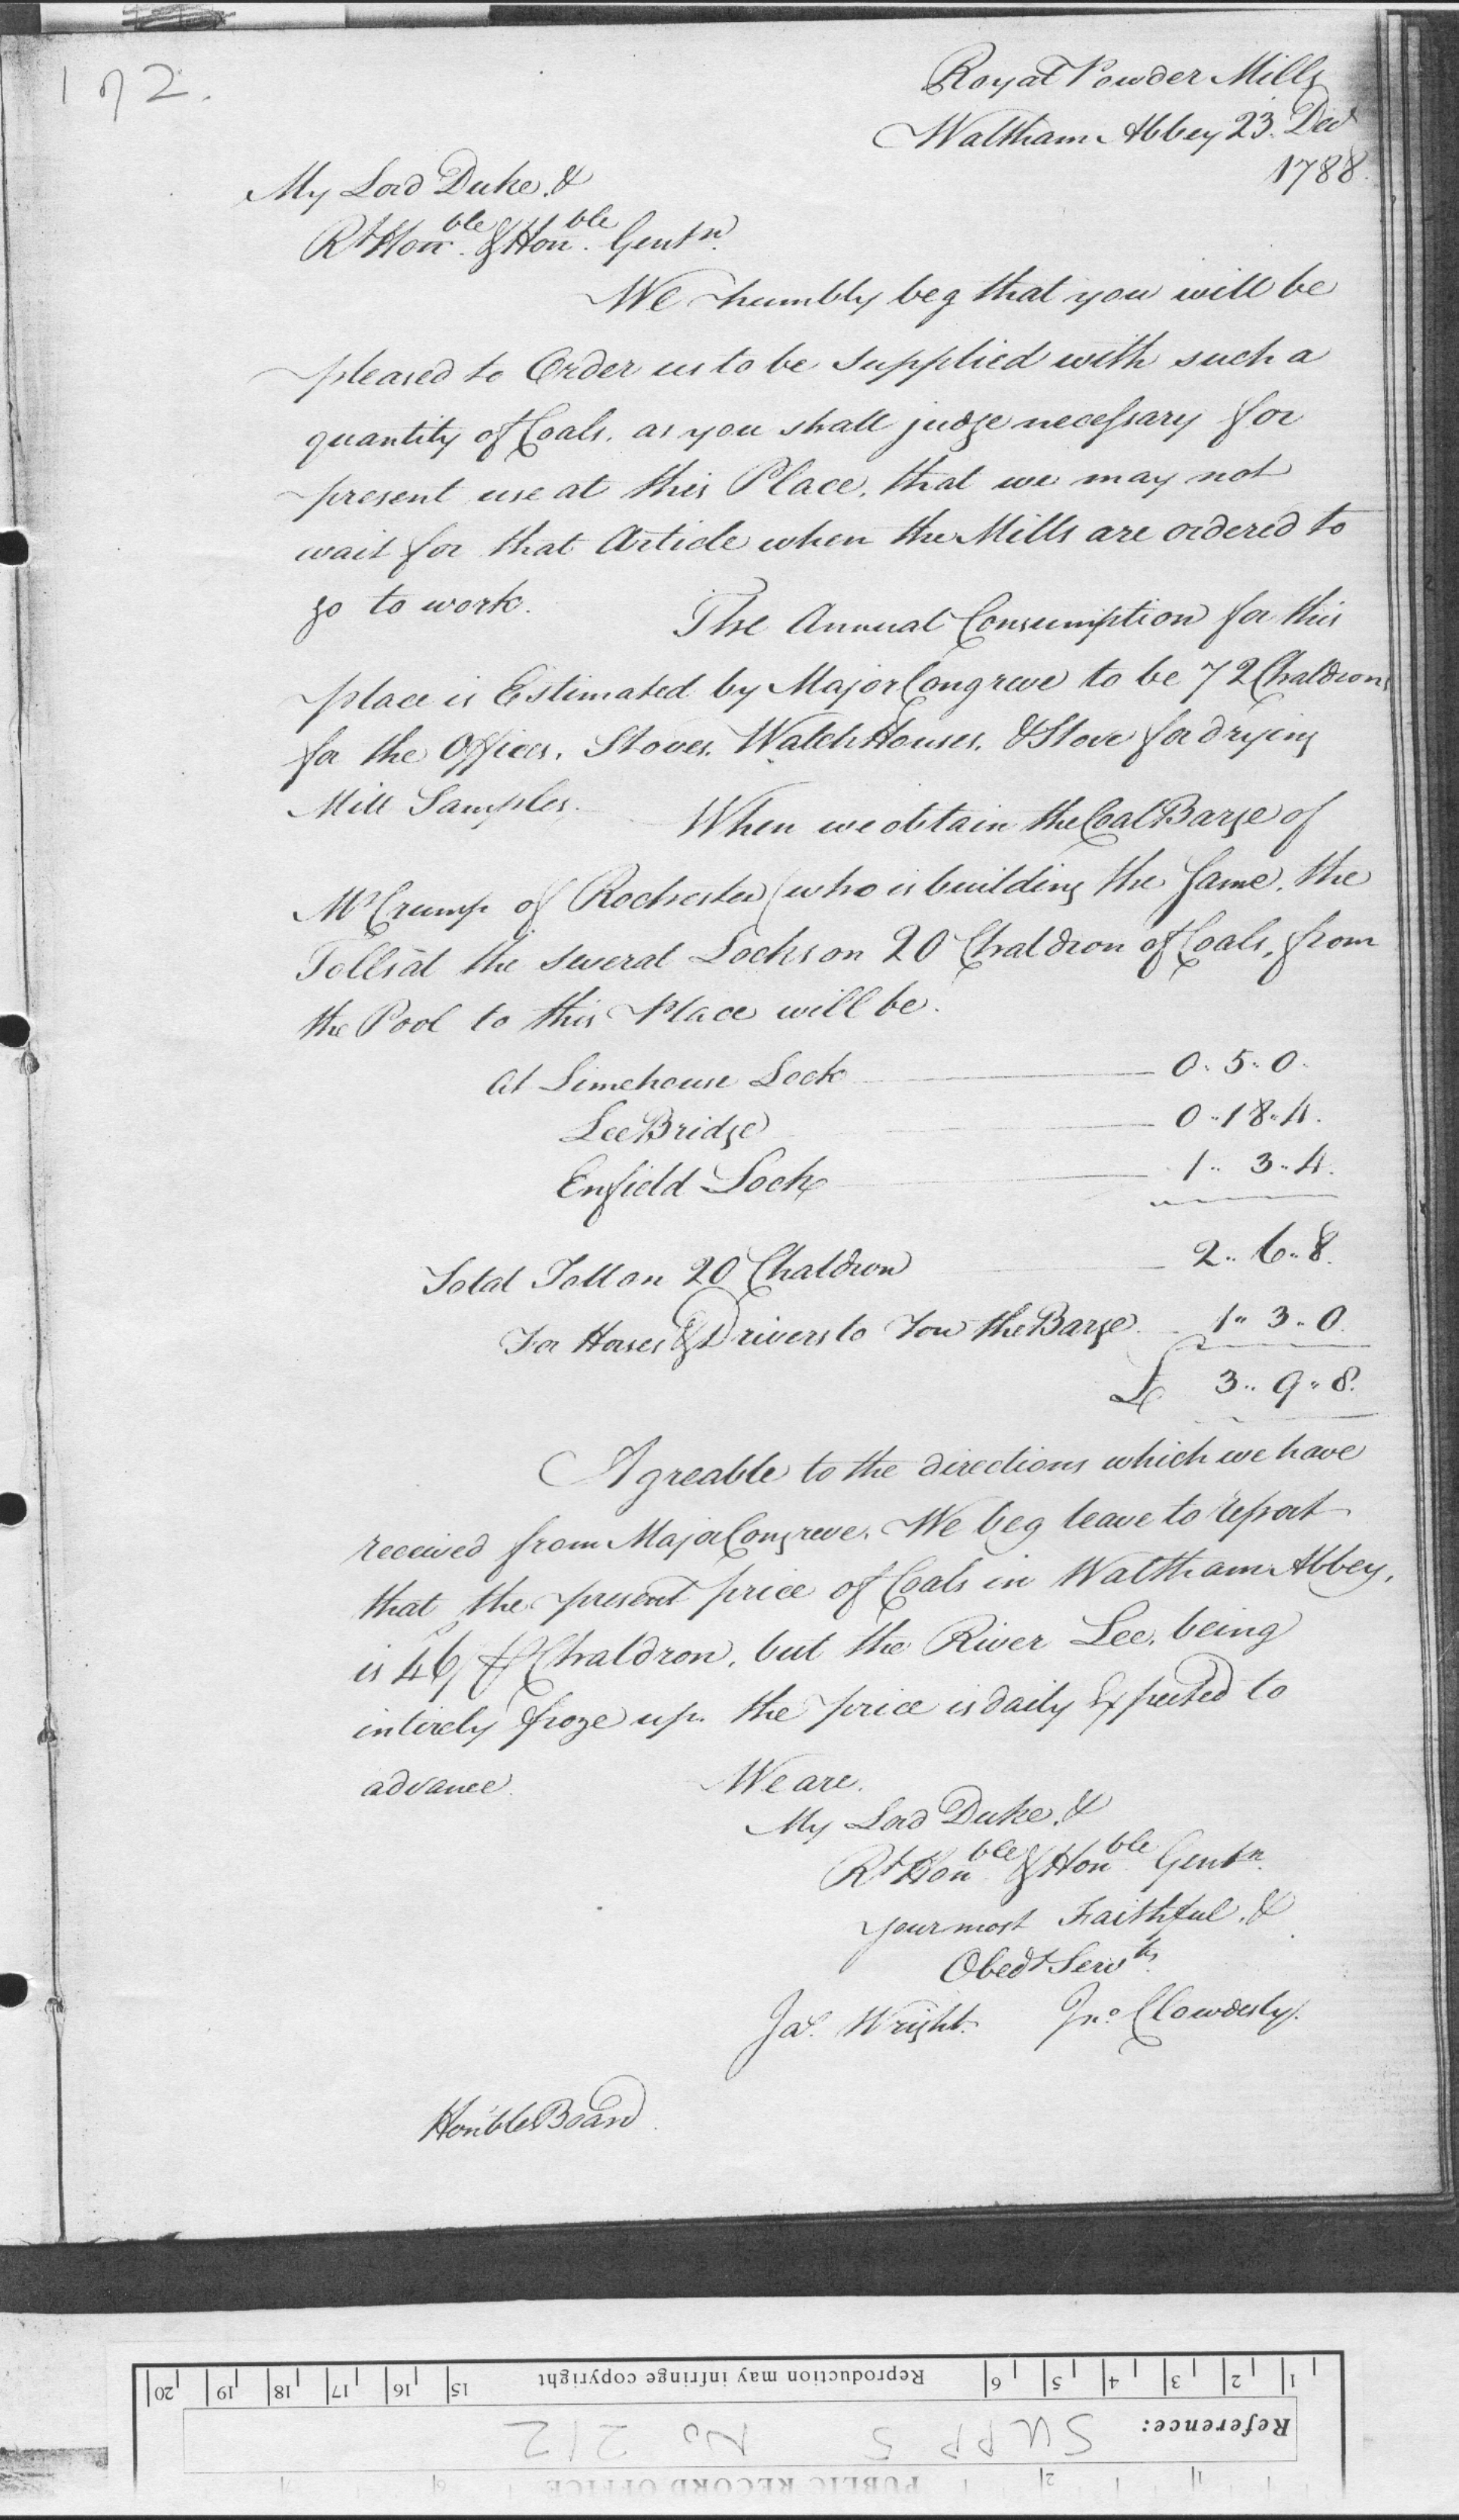 172.
Royal Powder Mills
Waltham Abbey 23. Decr
1788.
My Lord Duke, &
Rt Honble. & Honble. Gentn.
We humbly beg that you will be
pleased to Order us to be supplied with such a
quantity of Coals, as you shall judge necessary for
present use at this Place, that we may not
wait for that Article when the Mills are ordered to
go to work.
The Annual Consumption for this
place is Estimated by Major Congreve to be 72 Chaldrons
for the Offices, Stoves, Watch Houses, & Stove for drying
Mill Samples.
When we obtain the Coal Barge of
Mr Crump of Rochester (who is building the same, the
Tolls at the several Locks on 20 Chaldron of Coals, from
the Pool to this Place will be.
At Limehouse Lock 0. 5. 0.
Lee Bridge 0..18..4.
Enfield Lock 1.. 3..4.
Total Toll on 20 Chaldron 2.. 6..8.
For Horses & Drivers to Tow the Barge 1.. 3..0.
£ 3.. 9..8.
Agreable to the directions which we have
received from Major Congreve, We beg leave to report
that the present price of Coals in Waltham Abbey,
is 46/ ⅌ Chaldron, but the River Lee, being
intirely froze up. the price is daily Expected to
advance.
We are.
My Lord Duke, &
Rt Honble & Honble Gentn.
your most Faithful, &
Obedt Servts.
Jas. Wright. Jno. Clowdesly.
Hon'ble Board
1 2 3 4 5 6 Reproduction may infringe copyright 15 16 17 18 19 20
Reference: SUPP 5 No 212
PUBLIC RECORD OFFICE